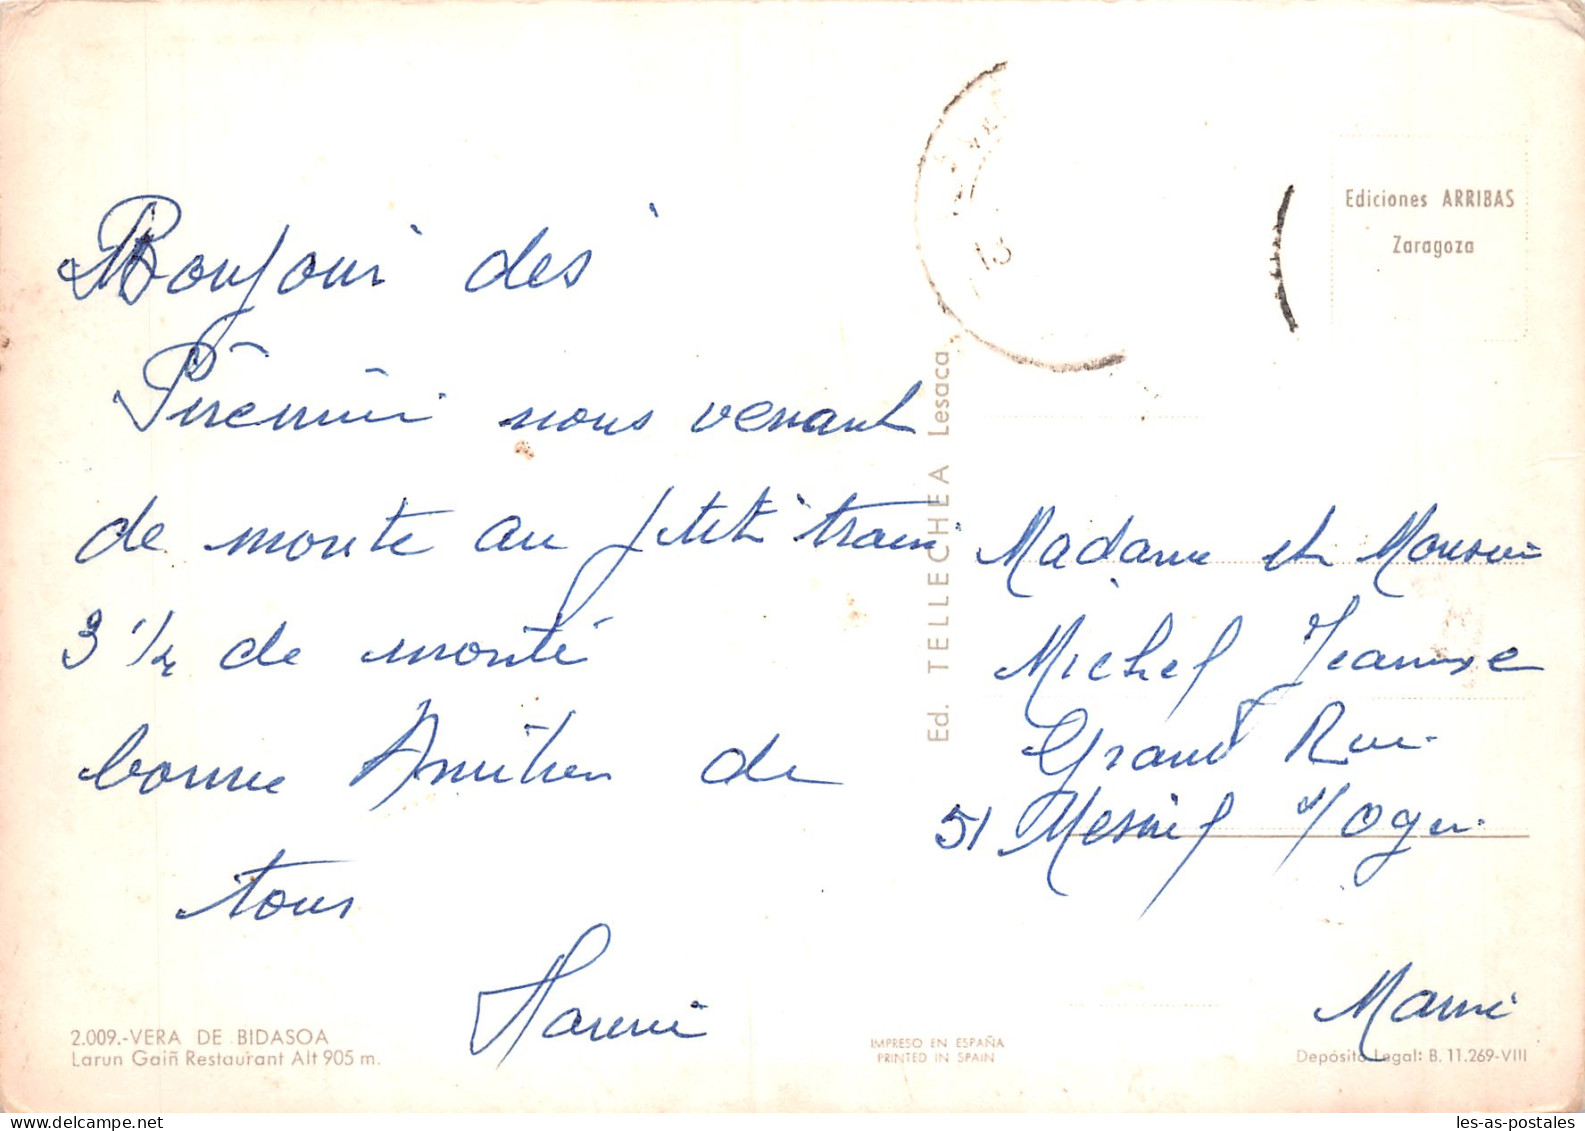 Bonjour des
nous venant
de monte au petit train
3 1/2 de monté
bonne de
tous
Madame et
Michel
Grand Rue
51 Mesnil s/Oger
Marne
Ediciones ARRIBAS
Zaragoza
Ed. TELLECHEA Lesaca
13
2.009.-VERA DE BIDASOA
Larun Gaiñ Restaurant Alt 905 m.
IMPRESO EN ESPAÑA
PRINTED IN SPAIN
Depósito Legal: B. 11.269-VIII
les-as-postales